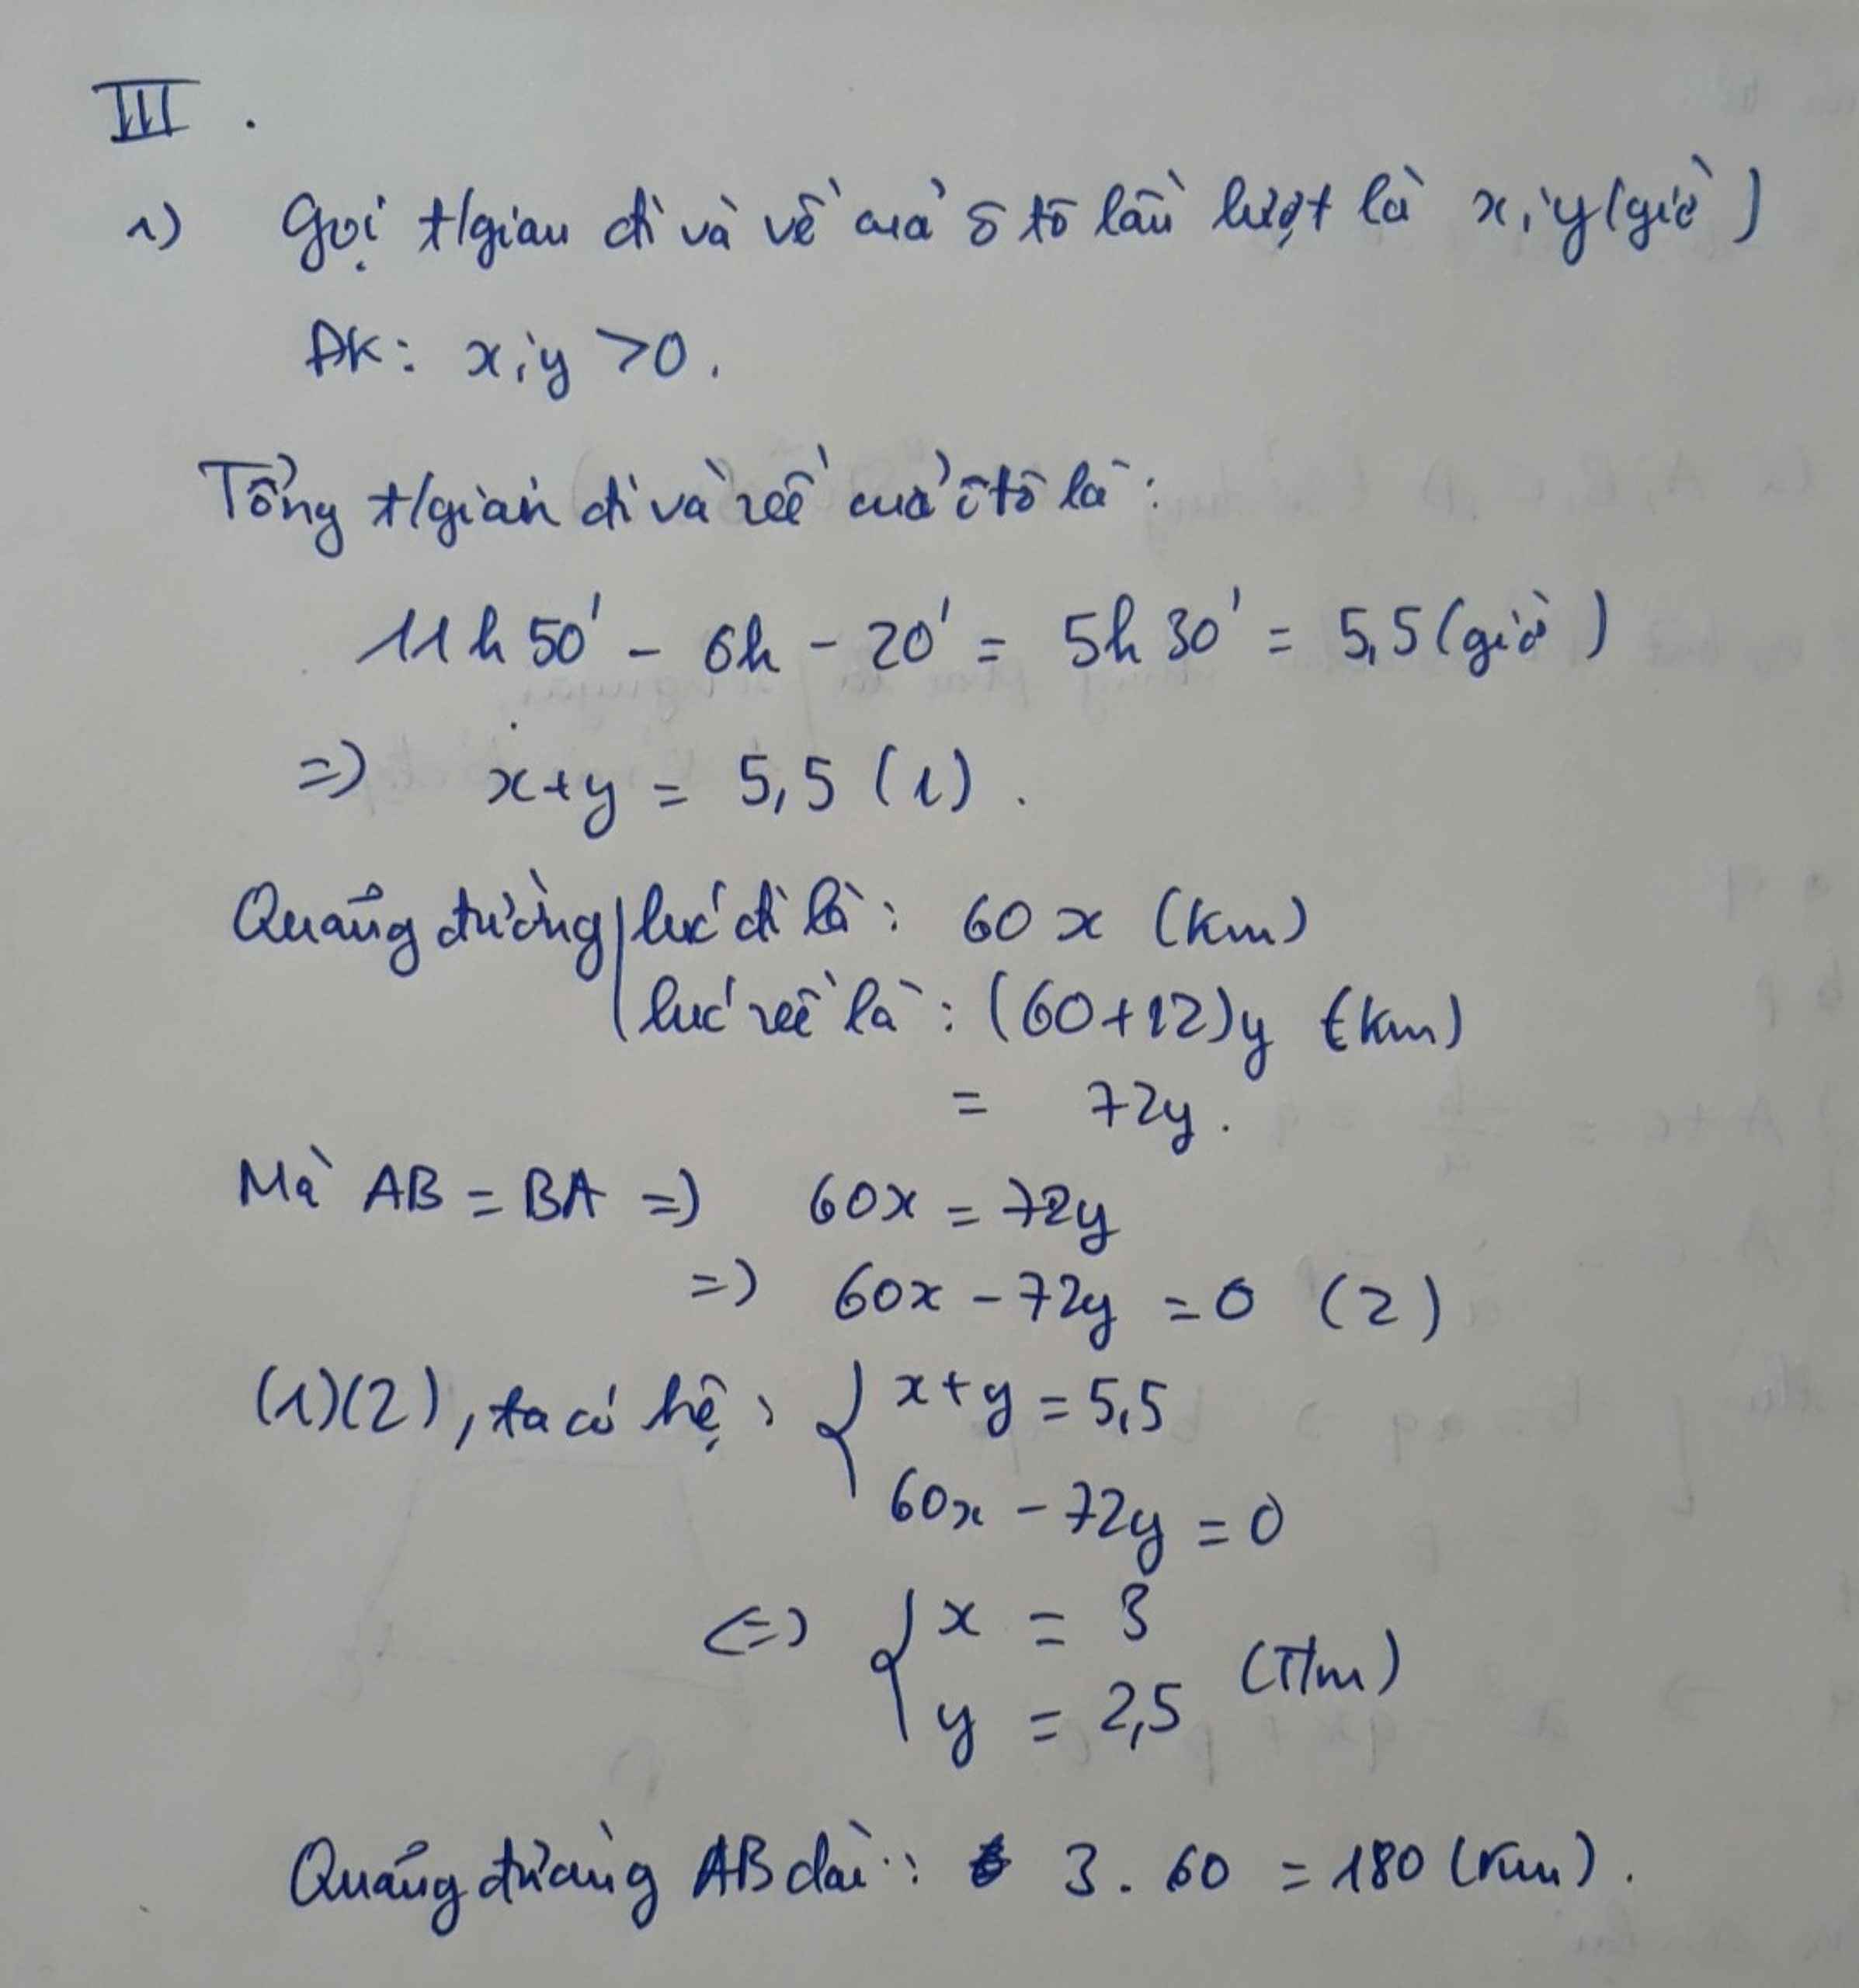 III.
1) Gọi t/gian đi và về của ô tô lần lượt là x; y (giờ)
ĐK: x; y > 0.
Tổng t/gian đi và về của ô tô là:
11h50' - 6h - 20' = 5h30' = 5,5 (giờ)
=> x+y = 5,5 (1).
Quãng đường lúc đi là: 60x (km)
lúc về là: (60+12)y (km)
= 72y.
Mà AB = BA => 60x = 72y
=> 60x - 72y = 0 (2)
(1)(2), ta có hệ: { x+y = 5,5
60x - 72y = 0
<=> { x = 3
y = 2,5 (T/m)
Quãng đường AB dài: 3.60 = 180 (km).